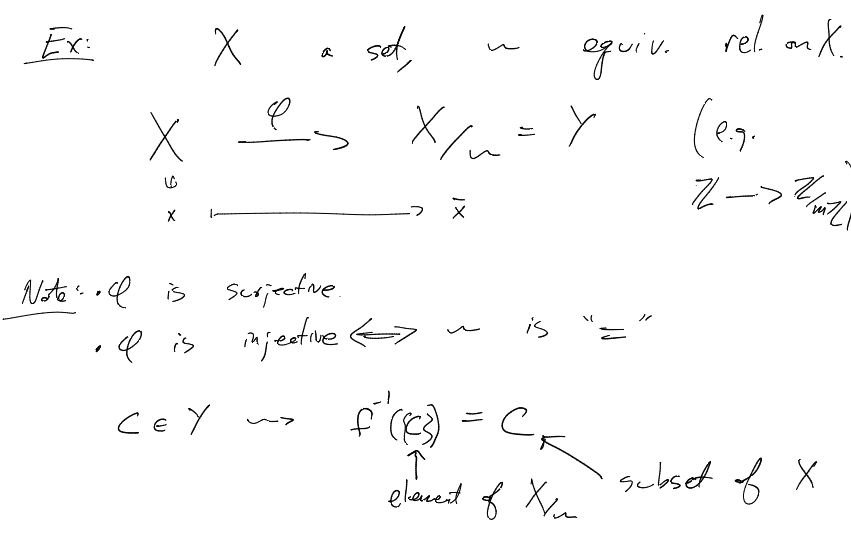 Ex: X a set, ~ equiv. rel. on X.
X —φ→ X/~ = Y (e.g.
ψ ℤ → ℤ/mℤ)
x ↦ x̄
Note: • φ is surjective.
• φ is injective ⟺ ~ is "="
C ∈ Y ⇝ f⁻¹({C}) = C
element of X/~ subset of X